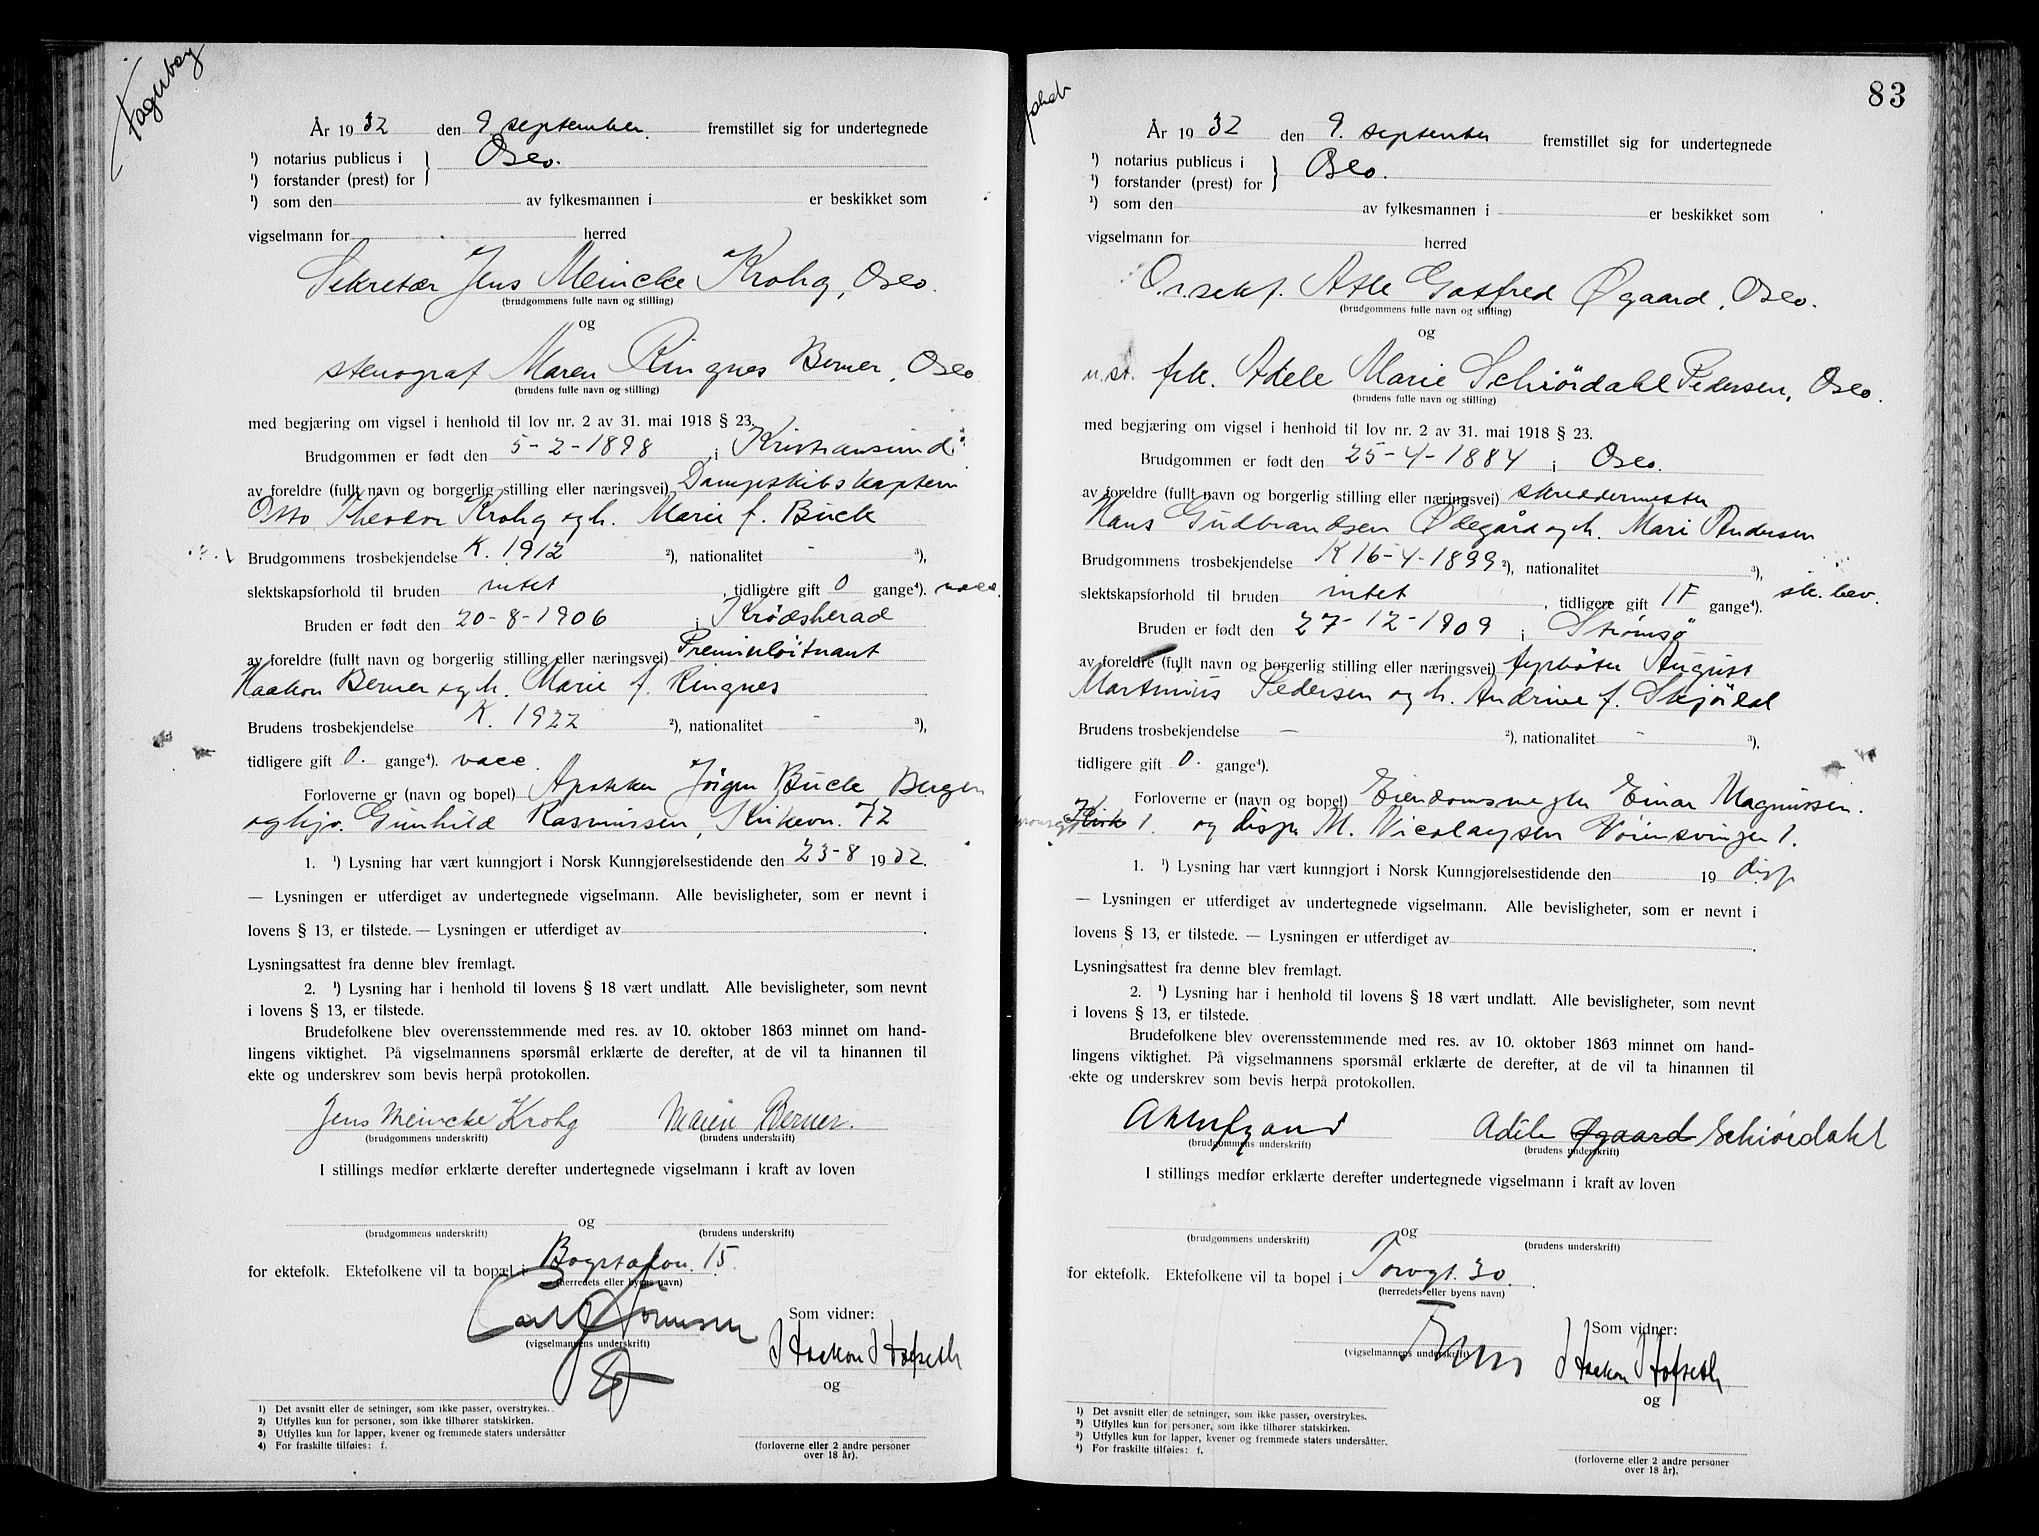 Fagerborg
År 1932 den 9 september. fremstillet sig for undertegnede
¹) notarius publicus i } Oslo.
¹) forstander (prest) for
¹) som den av fylkesmannen i er beskikket som
vigselmann for herred
Sekretær Jens Meincke Krohg, Oslo.
(brudgommens fulle navn og stilling)
og
stenograf Maren Ringnes Berner, Oslo
(brudens fulle navn og stilling)
med begjæring om vigsel i henhold til lov nr. 2 av 31. mai 1918 § 23.
Brudgommen er født den 5-2-1898 i Kristiansund
av foreldre (fullt navn og borgerlig stilling eller næringsvei) Dampskibskaptein
Otto Theodor Krohg og h. Marie f. Buck
Brudgommens trosbekjendelse K. 1912 ²), nationalitet - ³),
slektskapsforhold til bruden intet, tidligere gift 0 gange⁴). vacc.
Bruden er født den 20-8-1906 i Krødsherad
av foreldre (fullt navn og borgerlig stilling eller næringsvei) Premierløitnant
Haakon Berner og h. Marie f. Ringnes
Brudens trosbekjendelse K. 1922 ²), nationalitet - ³),
tidligere gift 0. gange⁴). vacc.
Forloverne er (navn og bopel) Apoteker Jörgen Buck Bergen
og hjv. Gunhild Rasmussen, Kirkevn. 72
1. ¹) Lysning har vært kunngjort i Norsk Kunngjørelsestidende den 23-8 1932.
— Lysningen er utferdiget av undertegnede vigselmann. Alle bevisligheter, som er nevnt i
lovens § 13, er tilstede. — Lysningen er utferdiget av .
Lysningsattest fra denne blev fremlagt.
2. ¹) Lysning har i henhold til lovens § 18 vært undlatt. Alle bevisligheter, som nevnt
i lovens § 13, er tilstede.
Brudefolkene blev overensstemmende med res. av 10. oktober 1863 minnet om hand-
lingens viktighet. På vigselmannens spørsmål erklærte de derefter, at de vil ta hinannen til
ekte og underskrev som bevis herpå protokollen.
Jens Meincke Krohg Maren Berner.
(brudgommens underskrift) (brudens underskrift)
I stillings medfør erklærte derefter undertegnede vigselmann i kraft av loven
og
(brudgommens underskrift) (brudens underskrift)
for ektefolk. Ektefolkene vil ta bopæl i Bogstadvn. 15.
(herredets eller byens navn)
Som vidner:
(vigselmannens underskrift)
Haakon Hofseth
og
(forloverne eller 2 andre personer
over 18 år).
1) Det avsnitt eller de setninger, som ikke passer, overstrykes.
2) Utfylles kun for personer, som ikke tilhører statskirken.
3) Utfylles kun for lapper, kvener og fremmede staters undersåtter
4) For fraskilte tilføies: f.
83
År 1932 den 9. september fremstillet sig for undertegnede
¹) notarius publicus i } Oslo.
¹) forstander (prest) for
¹) som den av fylkesmannen i er beskikket som
vigselmann for herred
O.r.sakf. Atle Gotfred Øgaard, Oslo.
(brudgommens fulle navn og stilling)
og
frk. Adele Marie Schiördahl Pedersen, Oslo.
(brudens fulle navn og stilling)
med begjæring om vigsel i henhold til lov nr. 2 av 31. mai 1918 § 23.
Brudgommen er født den 25-4-1884 i Oslo.
av foreldre (fullt navn og borgerlig stilling eller næringsvei) skreddermester
Hans Gudbrandsen Ødegård og h. Mari Andersen
Brudgommens trosbekjendelse K 16-4-1899 ²), nationalitet ³),
slektskapsforhold til bruden intet, tidligere gift 1F gange⁴). sk. bev.
Bruden er født den 27-12-1909 i Strömsö
av foreldre (fullt navn og borgerlig stilling eller næringsvei) fyrböter August
Martinius Pedersen og h. Andrine f. Skjöldal
Brudens trosbekjendelse - ²), nationalitet - ³),
tidligere gift 0. gange⁴).
Forloverne er (navn og bopel) Eiendomsmegler Einar Magnussen.
1. og disp. M. Nicolaysen Voiensvingen 1.
1. ¹) Lysning har vært kunngjort i Norsk Kunngjørelsestidende den 19 disp
— Lysningen er utferdiget av undertegnede vigselmann. Alle bevisligheter, som er nevnt i
lovens § 13, er tilstede. — Lysningen er utferdiget av .
Lysningsattest fra denne blev fremlagt.
2. ¹) Lysning har i henhold til lovens § 18 vært undlatt. Alle bevisligheter, som nevnt
i lovens § 13, er tilstede.
Brudefolkene blev overensstemmende med res. av 10. oktober 1863 minnet om hand-
lingens viktighet. På vigselmannens spørsmål erklærte de derefter, at de vil ta hinannen til
ekte og underskrev som bevis herpå protokollen.
Adele Øgaard Schiørdahl
(brudgommens underskrift) (brudens underskrift)
I stillings medfør erklærte derefter undertegnede vigselmann i kraft av loven
og
(brudgommens underskrift) (brudens underskrift)
for ektefolk. Ektefolkene vil ta bopel i Torvgt. 30.
(herredets eller byens navn)
Som vidner:
(vigselmannens underskrift)
Haakon Hofseth
og
(forloverne eller 2 andre personer
over 18 år).
¹) Det avsnitt eller de setninger, som ikke passer, overstrykes.
²) Utfylles kun for personer, som ikke tilhører statskirken.
³) Utfylles kun for lapper, kvener og fremmede staters undersåtter.
⁴) For fraskilte tilføies: f.